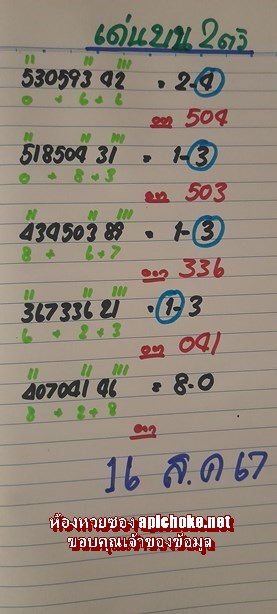 เด่นบน 2 ตัว
530593 42 = 2-4
0 + 6 + 6
ออก 504
518504 31 = 1-3
0 + 8 + 3
ออก 503
434503 89 = 1-3
8 + 6 + 7
ออก 336
367336 21 = 1-3
6 + 2 + 3
ออก 041
407041 46 = 8-0
8 + 2 + 8
ออก
16 ส.ค 67
ห้องหวยซอง aplchoke.net
ขอบคุณเจ้าของข้อมูล